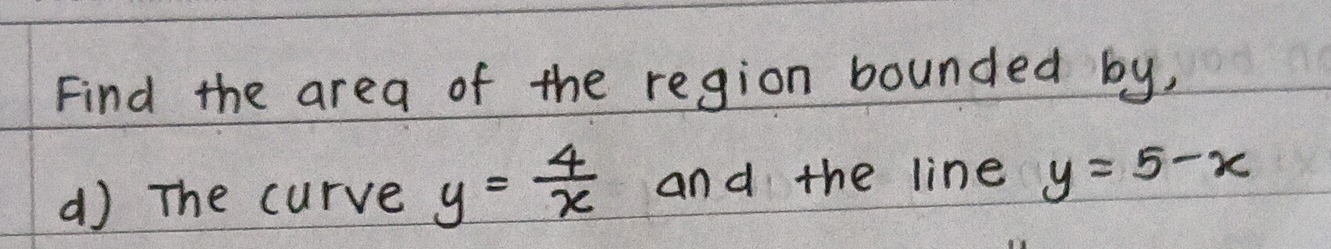 Find the area of the region bounded by,
d) The curve y = 4/x and the line y = 5-x